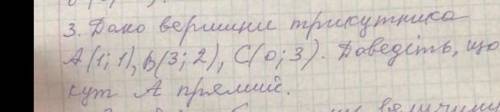 3. Дано вершини трикутника
A(1;1), B(3;2), C(0;3). Доведіть, що
кут A прямий.